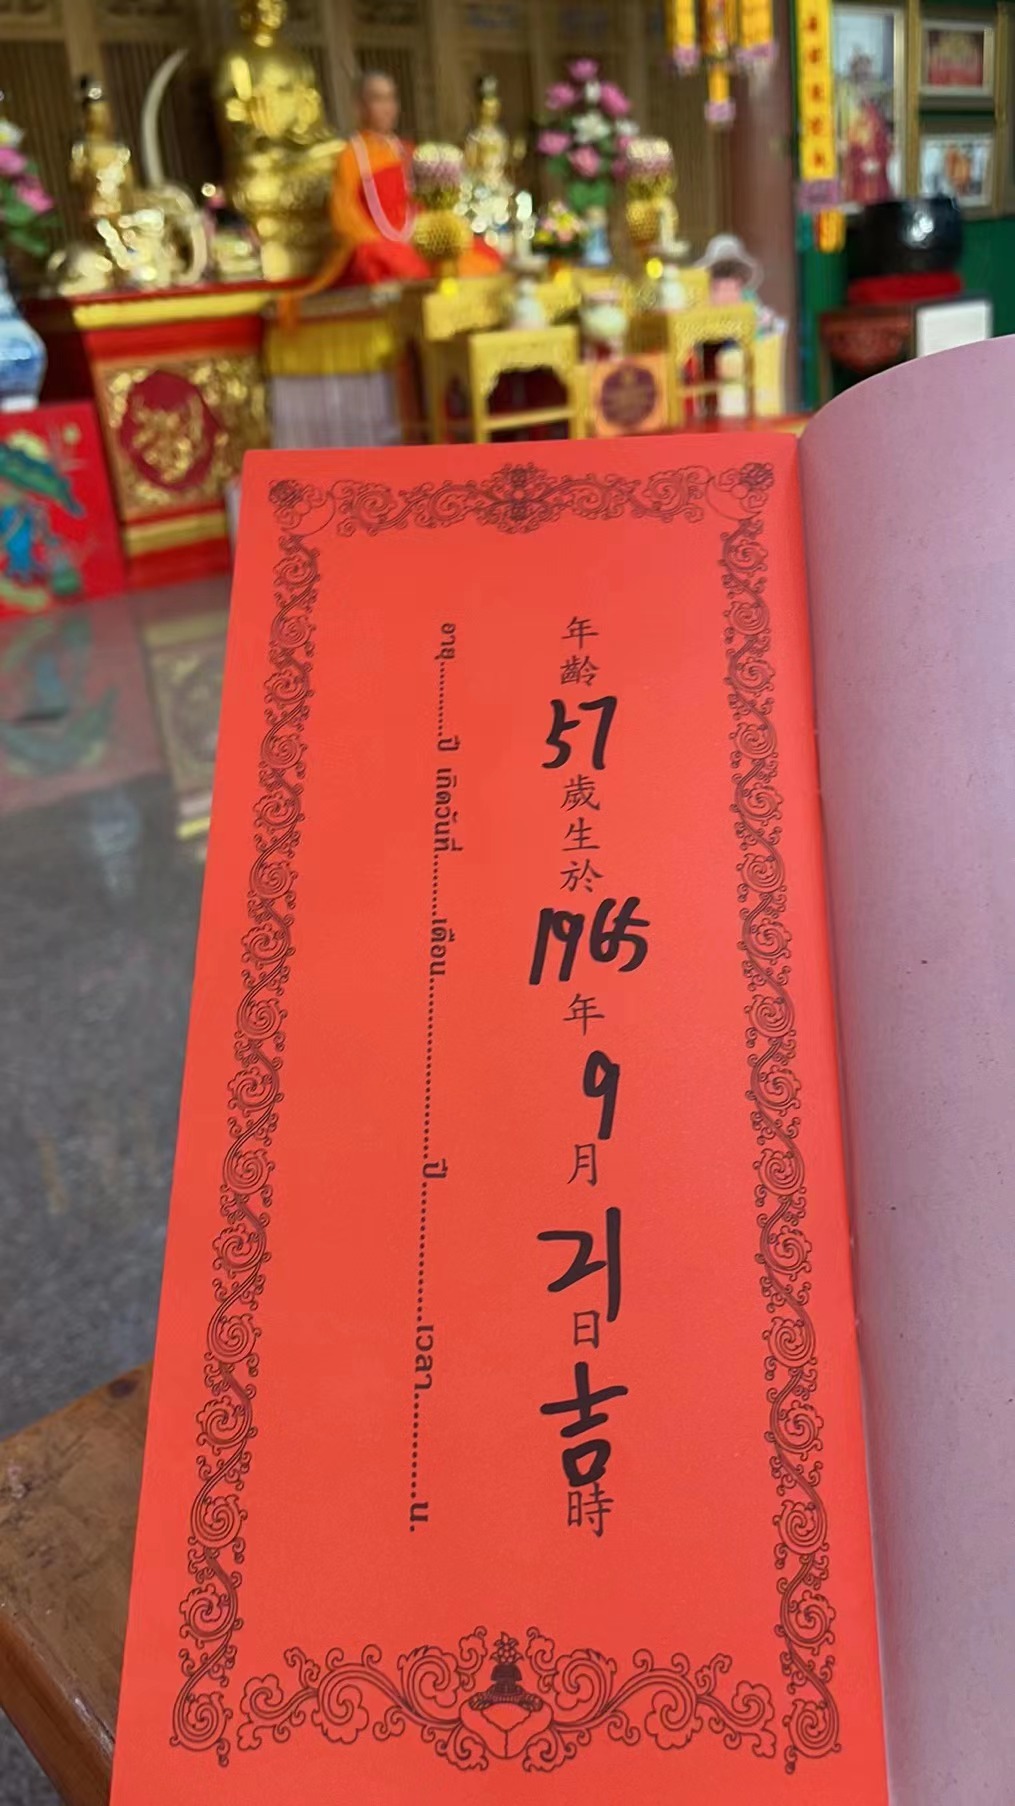 年齡57歲生於1965年9月21日吉時
อายุ..........ปี เกิดวันที่..........เดือน..............................ปี......................เวลา..................น.